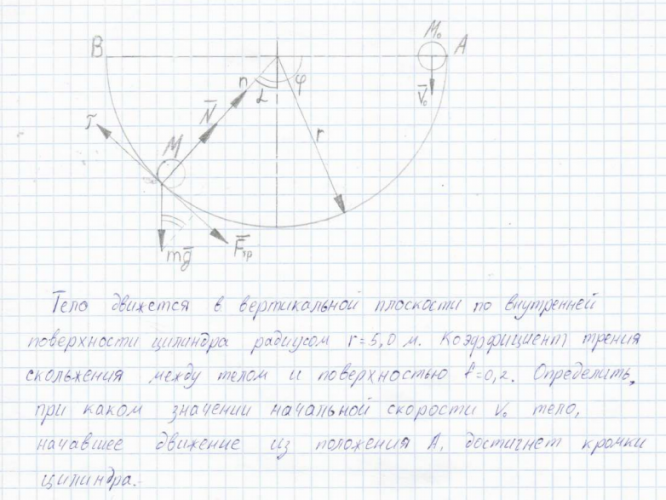 B
M₀
A
V̄₀
n
α
φ
N̄
r
τ̄
M
mḡ
F̄тр
Тело движется в вертикальной плоскости по внутренней
поверхности цилиндра радиусом r=5,0 м. Коэффициент трения
скольжения между телом и поверхностью f=0,2. Определить,
при каком значении начальной скорости V₀ тело,
начавшее движение из положения А, достигнет кромки
цилиндра.